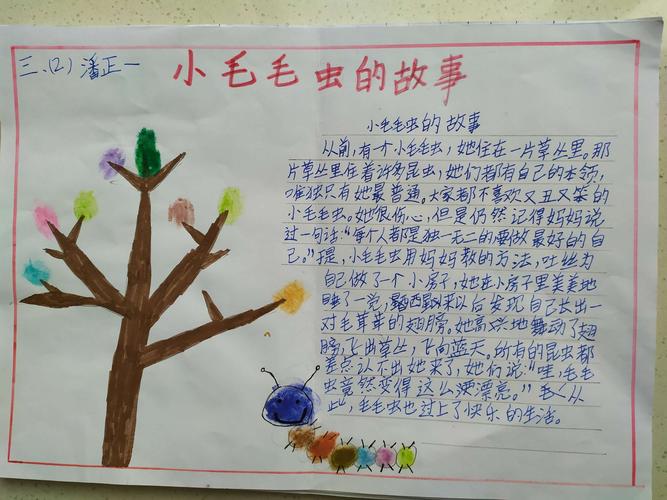 三、(2) 潘正一
小毛毛虫的故事
小毛毛虫的故事
从前,有一个小毛毛虫,她住在一片草丛里。那
片草丛里住着许多昆虫,她们都有自己的本领,
唯独只有她最普通。大家都不喜欢又丑又笨的
小毛毛虫。她很伤心,但是仍然记得妈妈说
过一句话:“每个人都是独一无二的要做最好的自
己。”于是,小毛毛虫用妈妈教的方法,吐丝为
自己做了一个小房子,她在小房子里美美地
睡了一觉,醒来以后发现自己长出一
对毛茸茸的翅膀。她高兴地舞动了翅
膀,飞出草丛,飞向蓝天。所有的昆虫都
差点认不出她来了,她们说:“哇,毛毛
虫竟然变得这么漂亮。”从
此,毛毛虫也过上了快乐的生活。